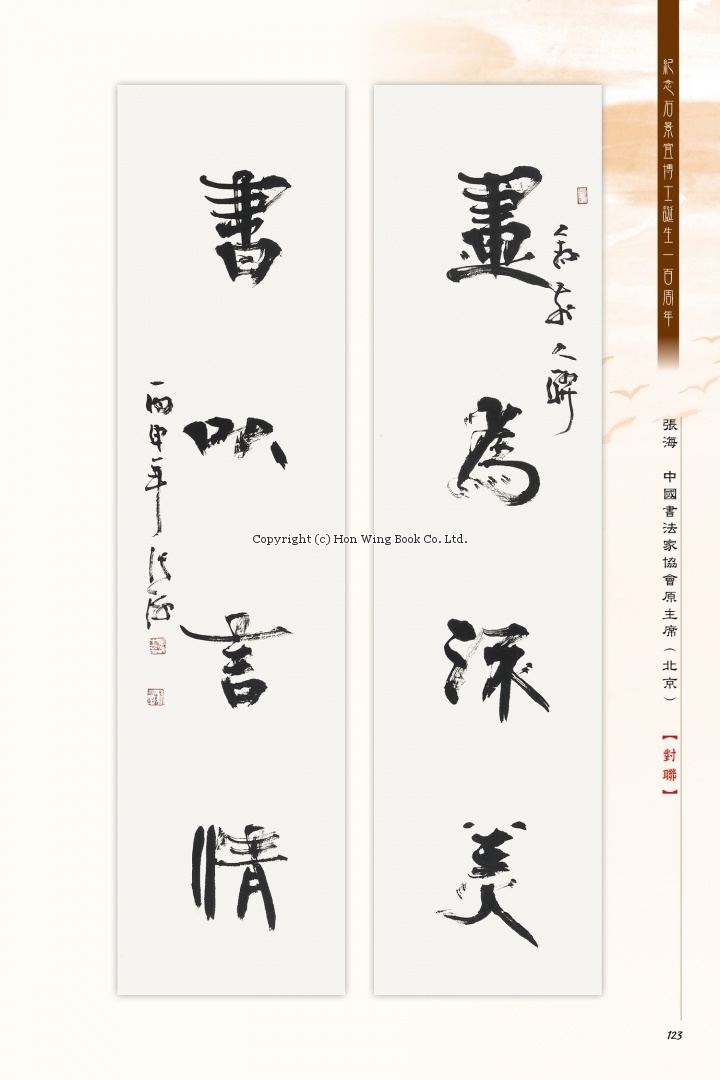 紀念石景宜博士誕生一百周年
張海 中國書法家協會原主席（北京）
【對聯】
畫為流美
書以言情
丙申年 張海
Copyright (c) Hon Wing Book Co. Ltd.
123